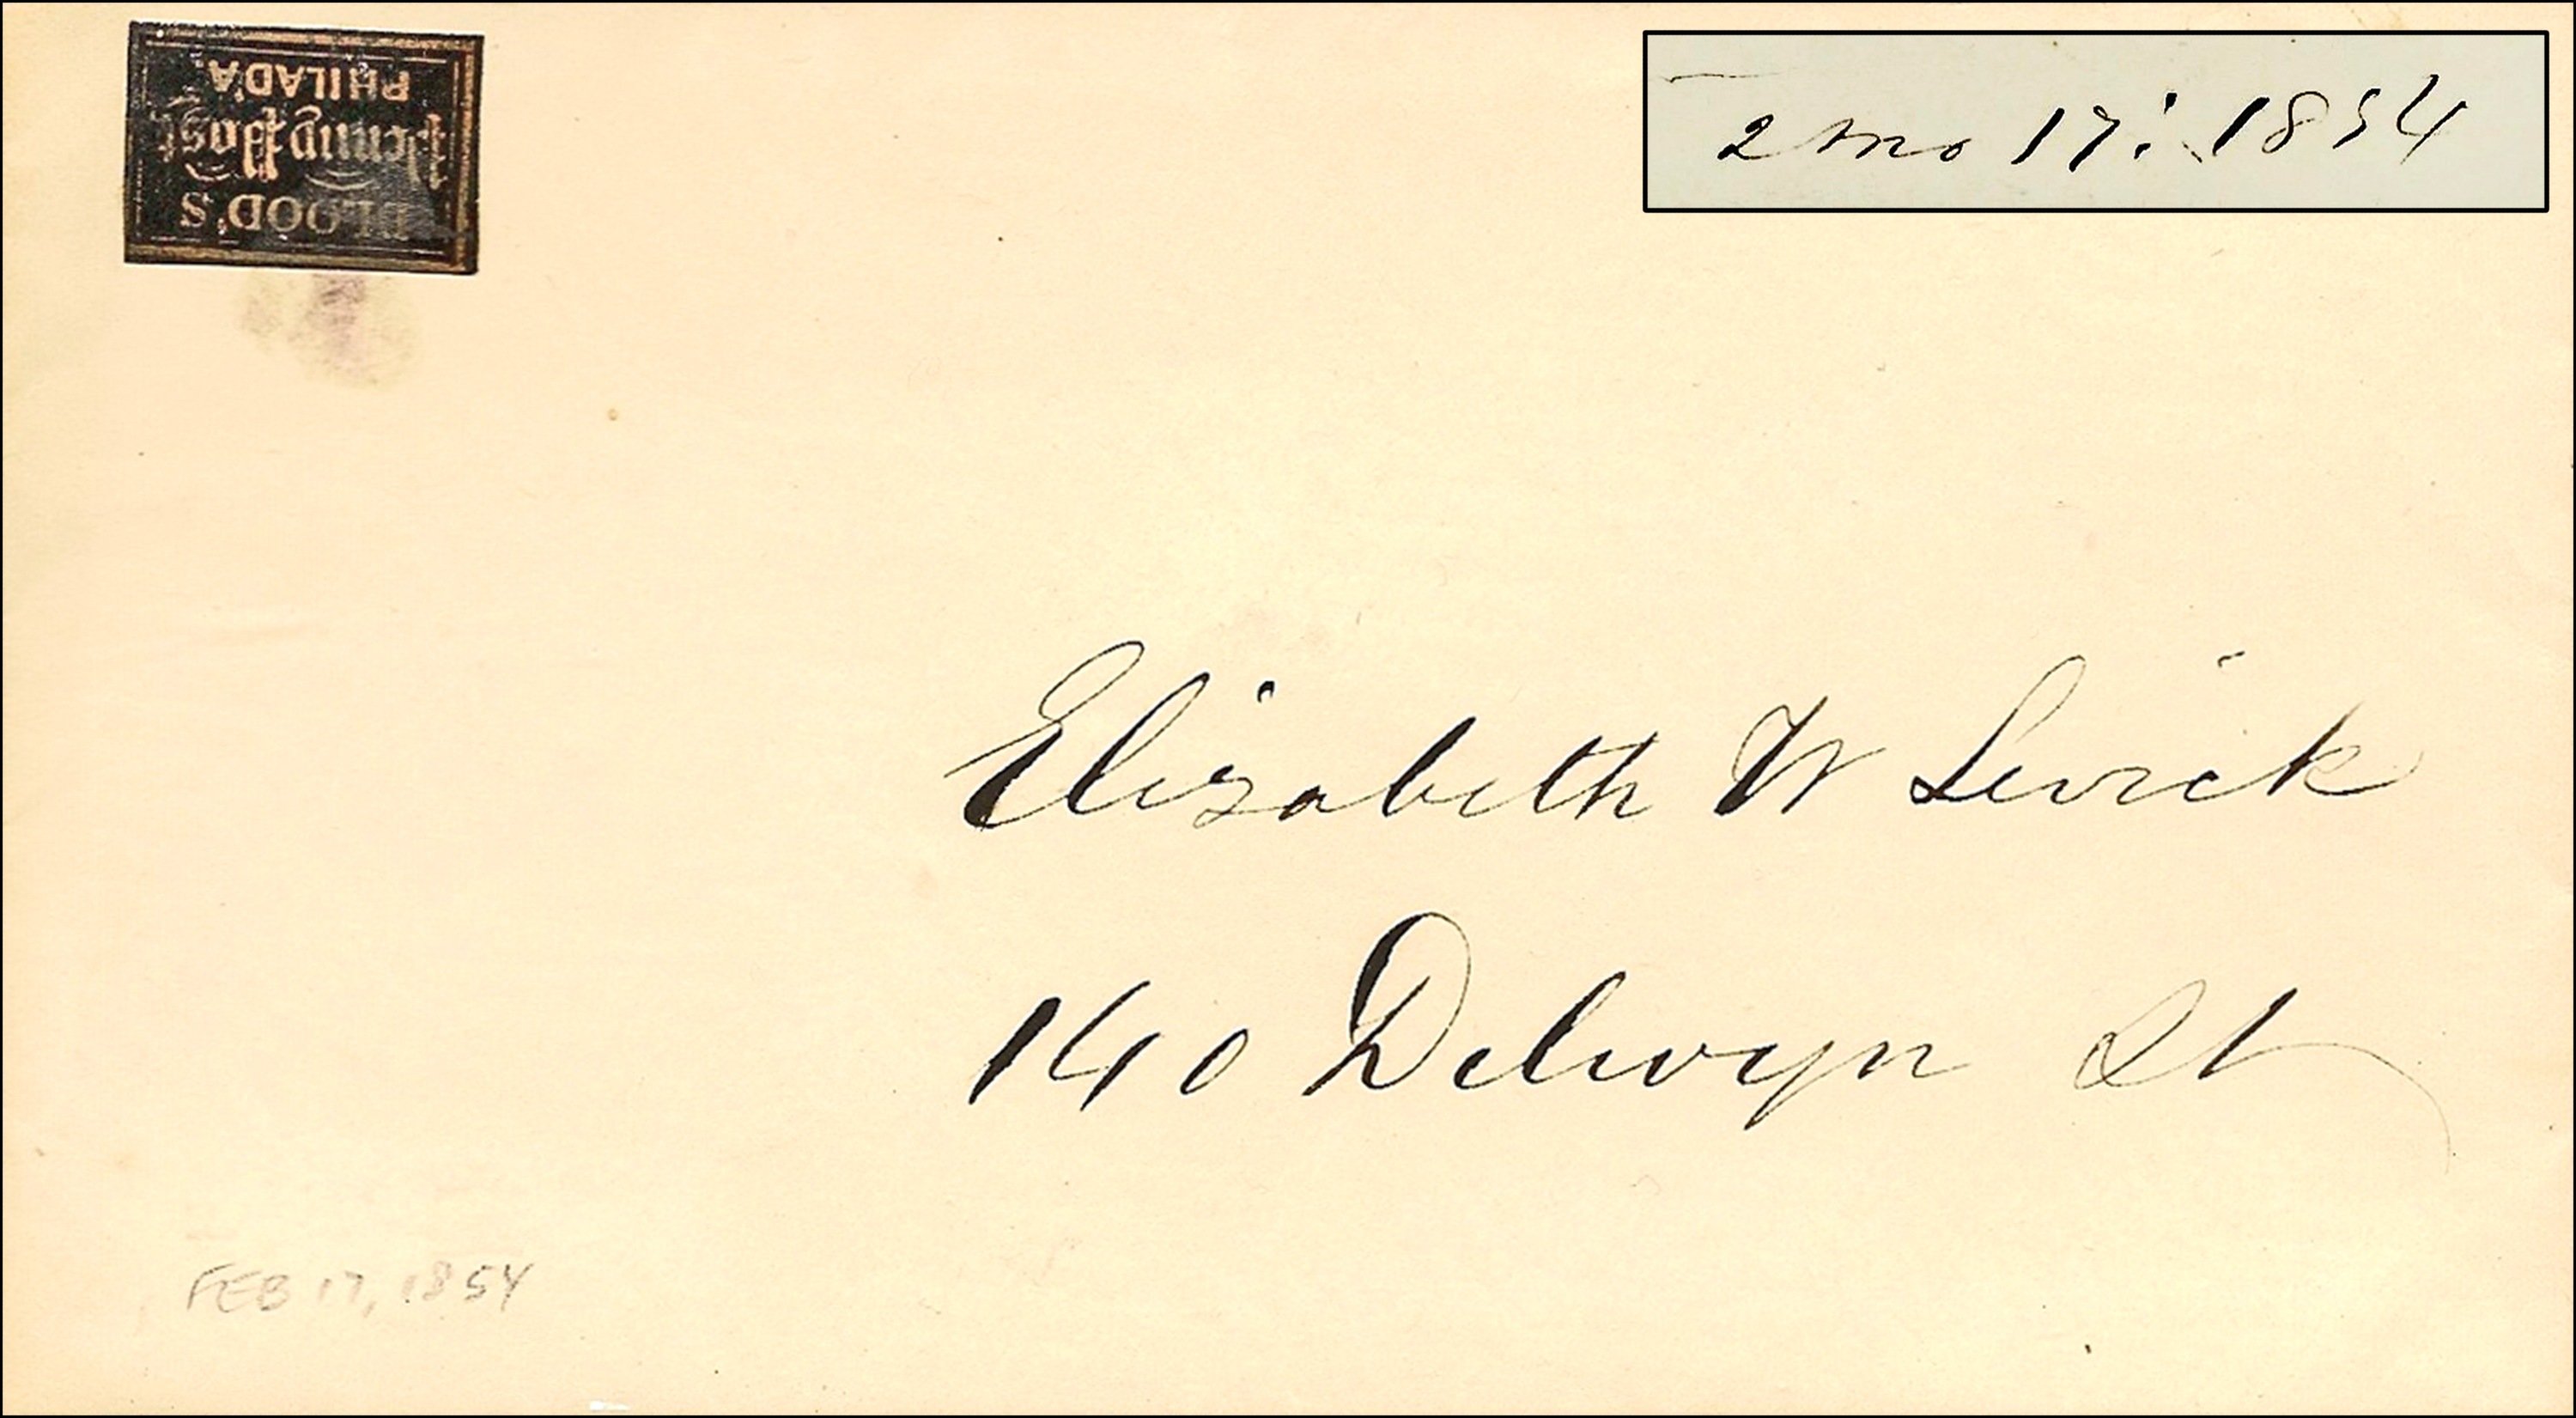 BLOOD'S
Penny Post
PHILAD'A.
2 mo 17: 1854
Elizabeth W Levick
140 Delwyn St
FEB 17, 1854